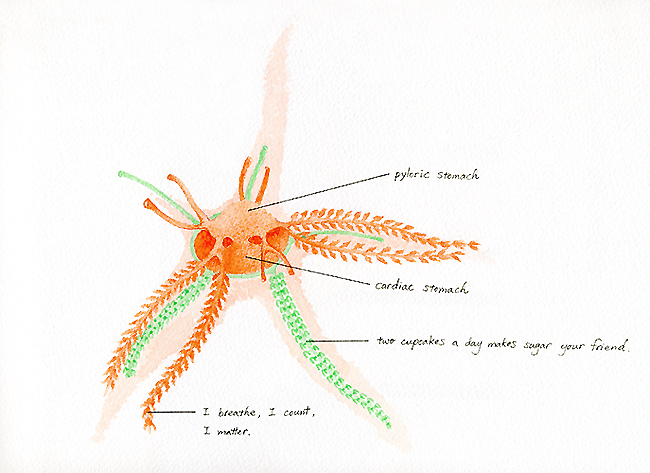 pyloric stomach
cardiac stomach
two cupcakes a day makes sugar your friend.
I breathe, I count,
I matter.